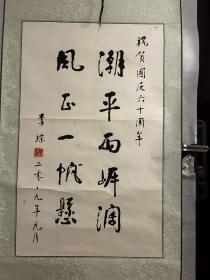 祝贺國庆六十周年
潮平两岸阔
风正一帆懸
李琮
二零〇九年九月